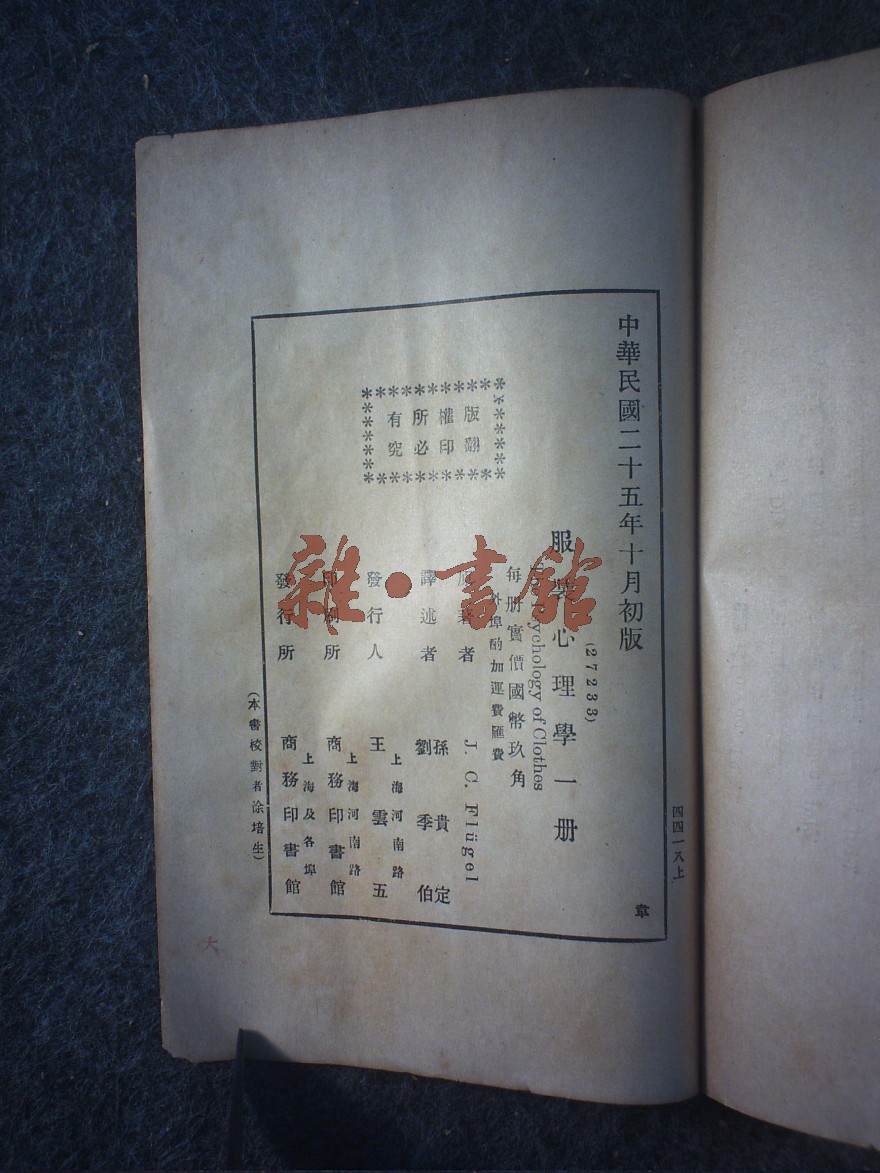 四四一八上
中華民國二十五年十月初版
章
(27233)
服裝心理學一册
The Psychology of Clothes
每册實價國幣玖角
外埠酌加運費匯費
版權所有
翻印必究
原著者 J. C. Flügel
譯述者 孫貴定
劉季伯
發行人 王雲五
上海河南路
印刷所 商務印書館
上海河南路
發行所 商務印書館
上海及各埠
(本書校對者徐培生)
大
雜·書館